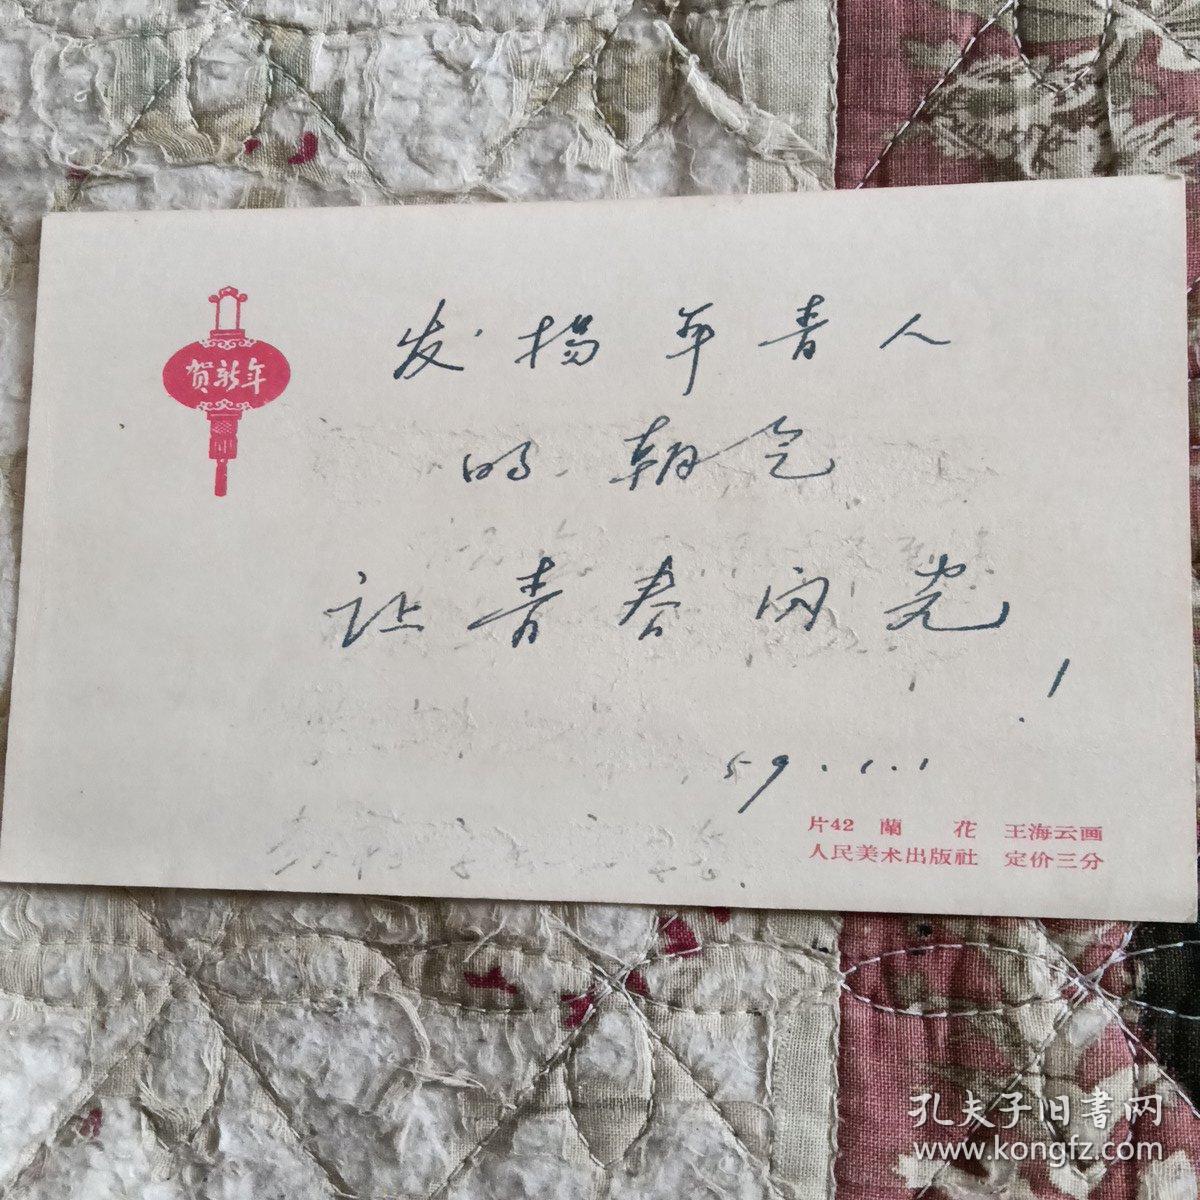 贺新年
发扬年青人
的朝气
让青春闪光
!
59.1.1
片42 蘭 花 王海云画
人民美术出版社 定价三分
孔夫子旧書网
www.kongfz.com